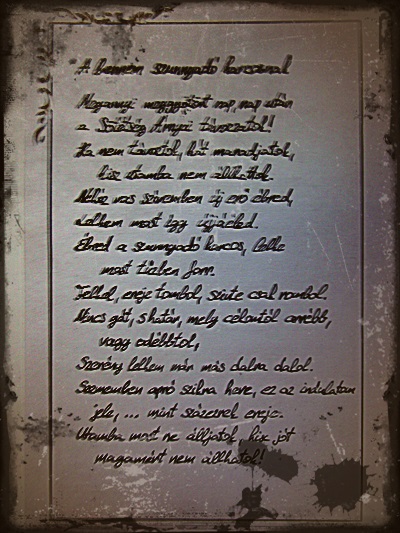 A bennem szunnyadó harcosnak
Megannyi meggyötört nap, nap után
a Sötétség Árnyai távozatok!
Ha nem távoztok, hát maradjatok,
hisz utamba nem állhattok.
Mélos vas szívemben új erő ébred,
Lelkem most így újjáéled.
Ébred a szunnyadó harcos, lelke
most tűzben forr.
Feltol, ereje tombol, szinte csak rombol.
Nincs gát, s határ, mely célomtól arrébb,
vagy odébbtol,
Szerény lelkem már más dalra dalol.
Szememben apró szikra heve, ez az indulatom
jele, ... mint százezrek ereje.
Utamba most ne álljatok, hisz jót
magamért nem állhatok!